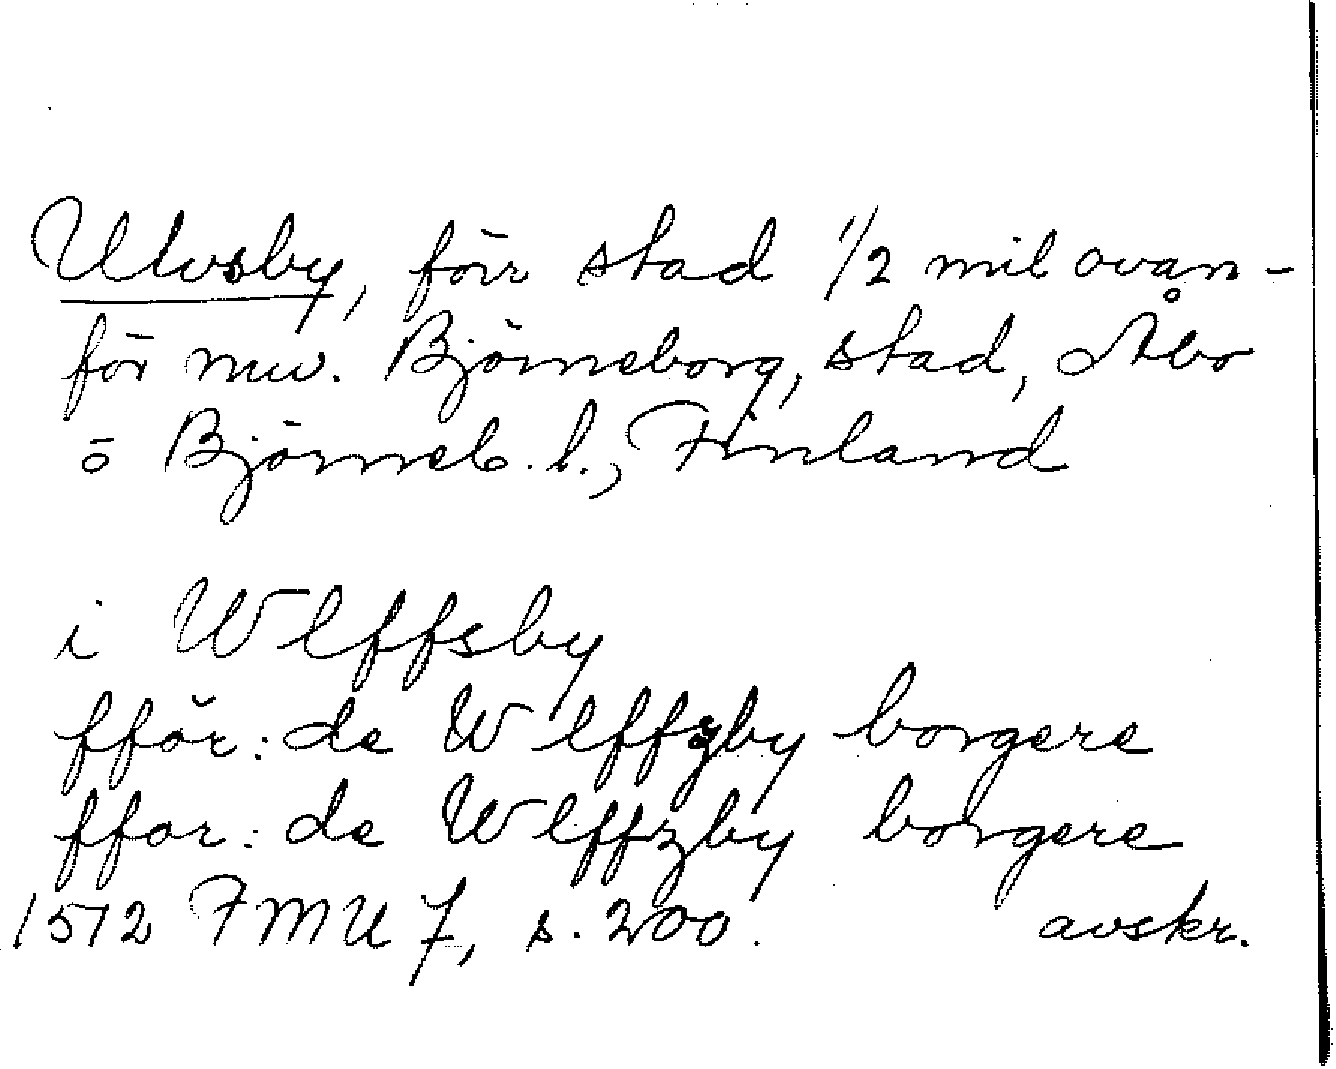 Ulvsby, förr stad 1/2 mil ovan-
för nuv. Björneborg, stad, Åbo
o Björneb. l., Finland
i Wlffsby
fför: de Wlffzby borgere
ffor: de Wlffzby borgere
1512 FMU 7, s. 200. avskr.